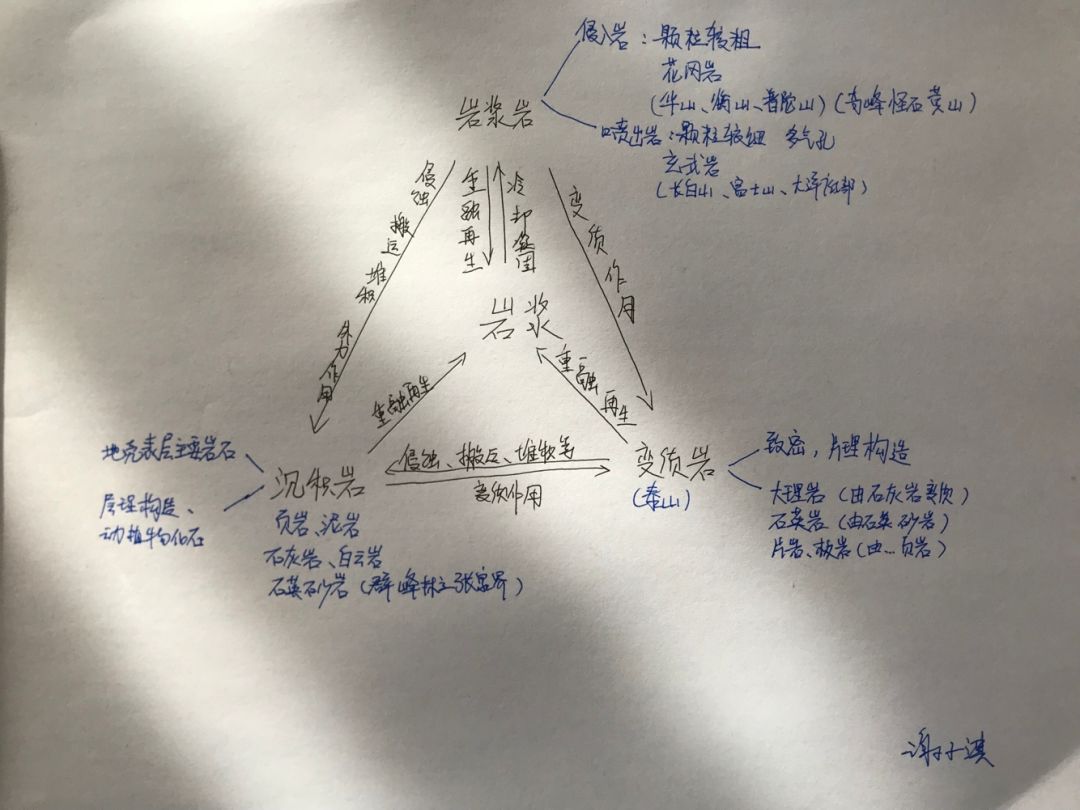 侵入岩：颗粒较粗
花冈岩
(华山、衡山、普陀山)(奇峰怪石黄山)
岩浆岩
喷出岩：颗粒较细 多气孔
玄武岩
(长白山、富士山、大洋底部)
侵蚀 搬运 堆积 外力作用
重融再生
冷却凝固
变质作用
岩浆
重融再生
重融再生
地壳表层主要岩石
层理构造、
动植物化石
沉积岩
页岩、泥岩
石灰岩、白云岩
石英砂岩(群峰林立张家界)
侵蚀、搬运、堆积等
变质作用
变质岩
(泰山)
致密，片理构造
大理岩(由石灰岩变质)
石英岩(由石英砂岩)
片岩、板岩(由…页岩)